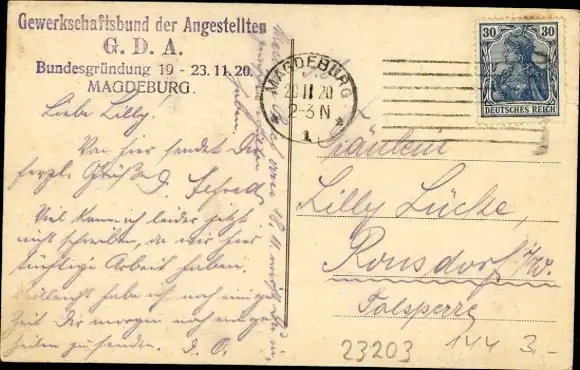 Gewerkschaftsbund der Angestellten
G. D. A.
Bundesgründung 19 - 23.11.20.
MAGDEBURG.
Liebe Lilly!
Von hier sendet Dir
herzl. Grüße D. Alfred
Viel kann ich leider jetzt
nicht schreiben, da wir hier
tüchtige Arbeit haben.
Vielleicht habe ich noch einige
Zeit Dir morgen noch einige
Zeilen zu senden. D. O.
MAGDEBURG
20 11 20
2-3 N
1
30 30
DEUTSCHES REICH
Fräulein
Lilly Lücke,
Ronsdorf i/W.
Talsperre
23203 144 3,-